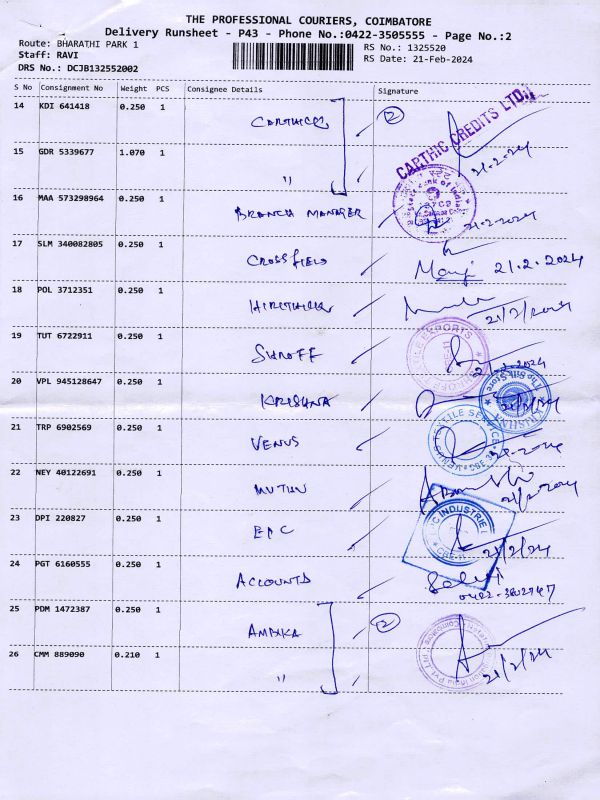 THE PROFESSIONAL COURIERS, COIMBATORE
Delivery Runsheet - P43 - Phone No.:0422-3505555 - Page No.:2
Route: BHARATHI PARK 1
Staff: RAVI
DRS No.: DCJB132552002
RS No.: 1325520
RS Date: 21-Feb-2024
S No Consignment No Weight PCS Consignee Details Signature
14 KDI 641418 0.250 1 ②
CARTHIC CREDITS LTD.,
15 GDR 5339677 1.070 1 " 21-2-24
16 MAA 573298964 0.250 1 BRANCH MANAGER 21-2-2024
State Bank of India
17 SLM 340082805 0.250 1 CROSSFIELD 21.2.2024
18 POL 3712351 0.250 1 21/2/2024
19 TUT 6722911 0.250 1 SUROFF 2024
EXPORTS
20 VPL 945128647 0.250 1 KRISHNA
KRISHNA The Silk Store
21 TRP 6902569 0.250 1 VENUS
VENUS TEXTILE SERVICE CBE
22 NEY 40122691 0.250 1 MUTHU 21/2/2024
23 DPI 220827 0.250 1 EPC 21/2/24
INDUSTRIE
24 PGT 6160555 0.250 1 ACCOUNTS
25 PDM 1472387 0.250 1 AMBIKA ②
26 CMM 889090 0.210 1 " 21/2/24